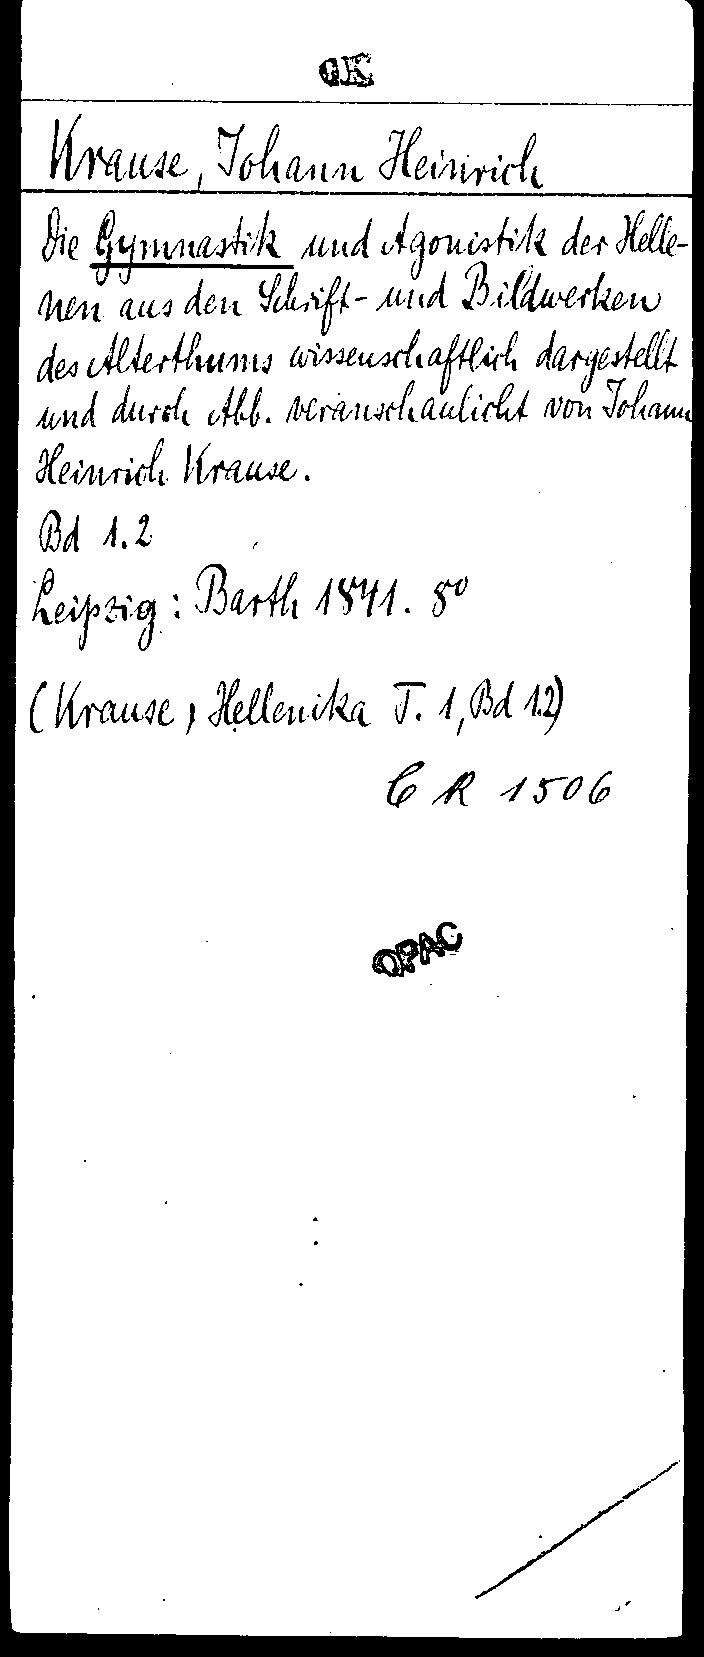 GK
Krause, Johann Heinrich
Die Gymnastik und Agonistik der Helle-
nen aus den Schrift- und Bildwerken
des Alterthums wissenschaftlich dargestellt
und durch Abb. veranschaulicht von Johann
Heinrich Krause.
Bd 1.2
Leipzig: Barth 1841. 8°
(Krause, Hellenika T. 1, Bd 1.2)
C R 1506
OPAC